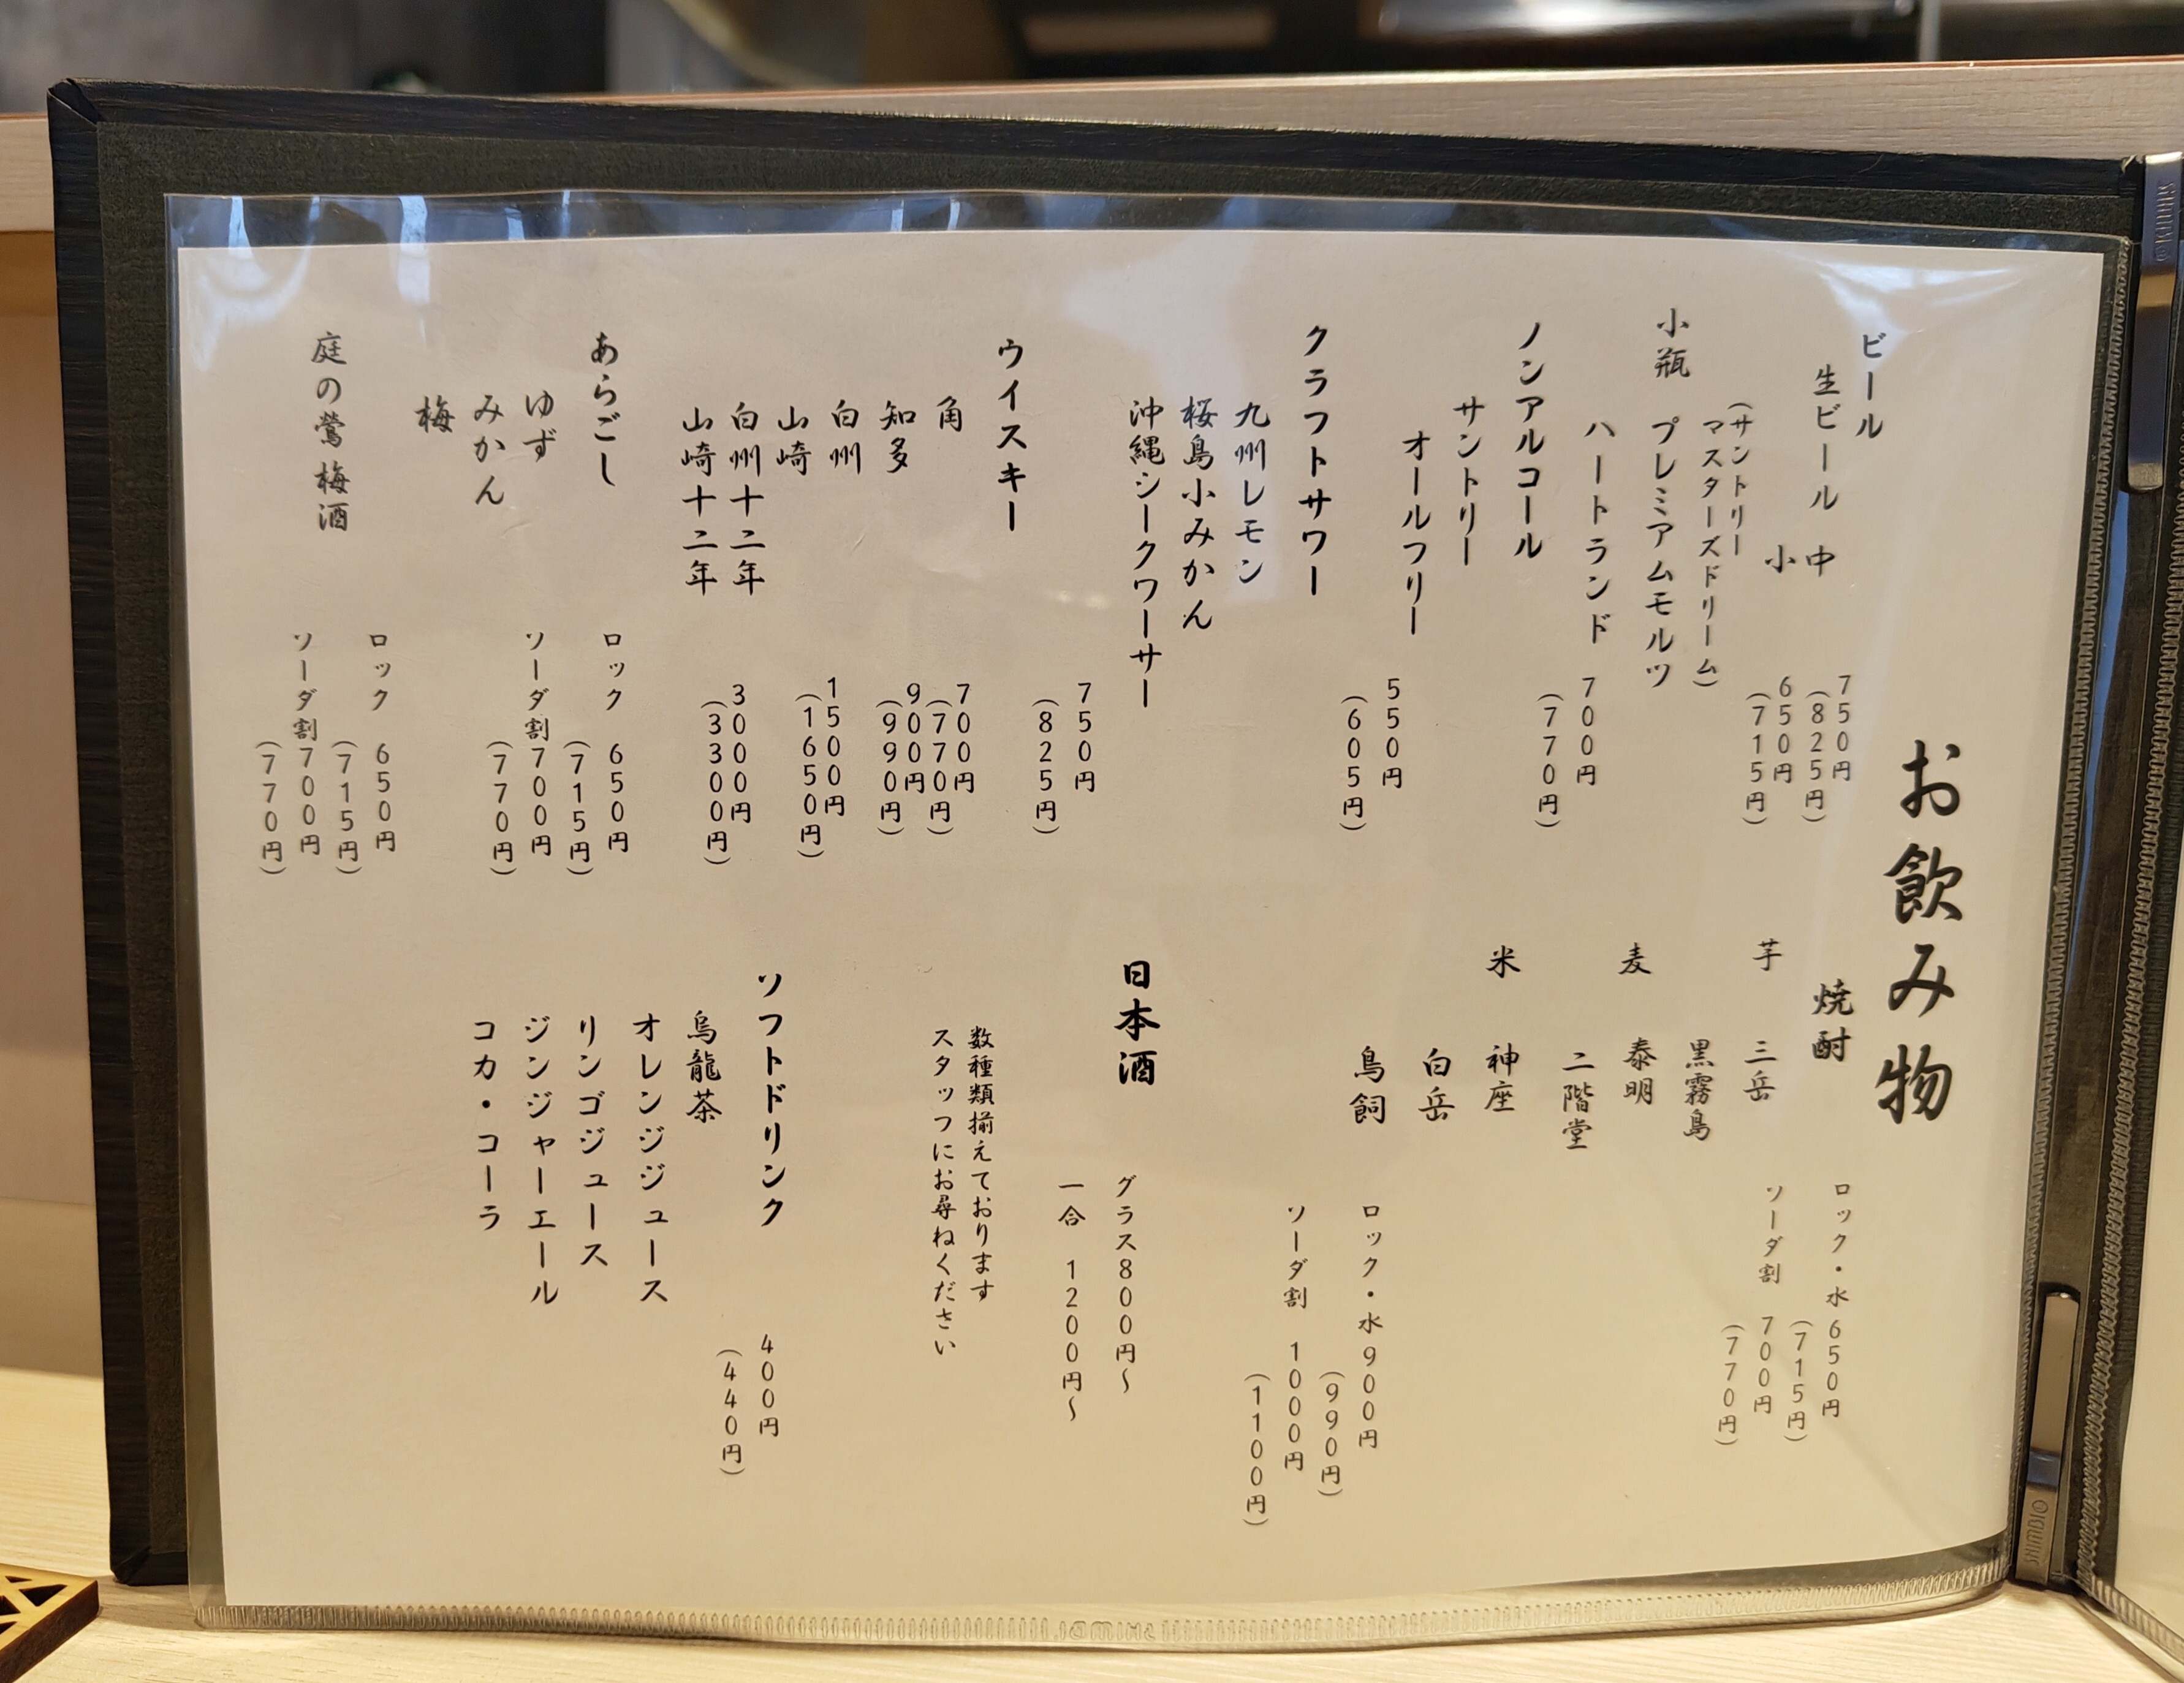 お飲み物
ビール
生ビール 中 750円
(825円)
小 650円
(715円)
(サントリー
マスターズドリーム)
小瓶 プレミアムモルツ
ハートランド 700円
(770円)
ノンアルコール
サントリー
オールフリー 550円
(605円)
クラフトサワー
九州レモン
桜島小みかん
沖縄シークワーサー
750円
(825円)
ウイスキー
角 700円
(770円)
知多 900円
(990円)
白州
山崎 1500円
(1650円)
白州十二年
山崎十二年 3000円
(3300円)
あらごし
ゆず
みかん
梅
ロック 650円
(715円)
ソーダ割700円
(770円)
庭の鶯 梅酒
ロック 650円
(715円)
ソーダ割700円
(770円)
焼酎
ロック・水 650円
(715円)
ソーダ割 700円
(770円)
芋 三岳
黒霧島
麦 泰明
二階堂
米 神座
白岳
鳥飼
ロック・水900円
(990円)
ソーダ割 1000円
(1100円)
日本酒
グラス800円〜
一合 1200円〜
数種類揃えております
スタッフにお尋ねください
ソフトドリンク 400円
(440円)
烏龍茶
オレンジジュース
リンゴジュース
ジンジャーエール
コカ・コーラ
SHIMBI